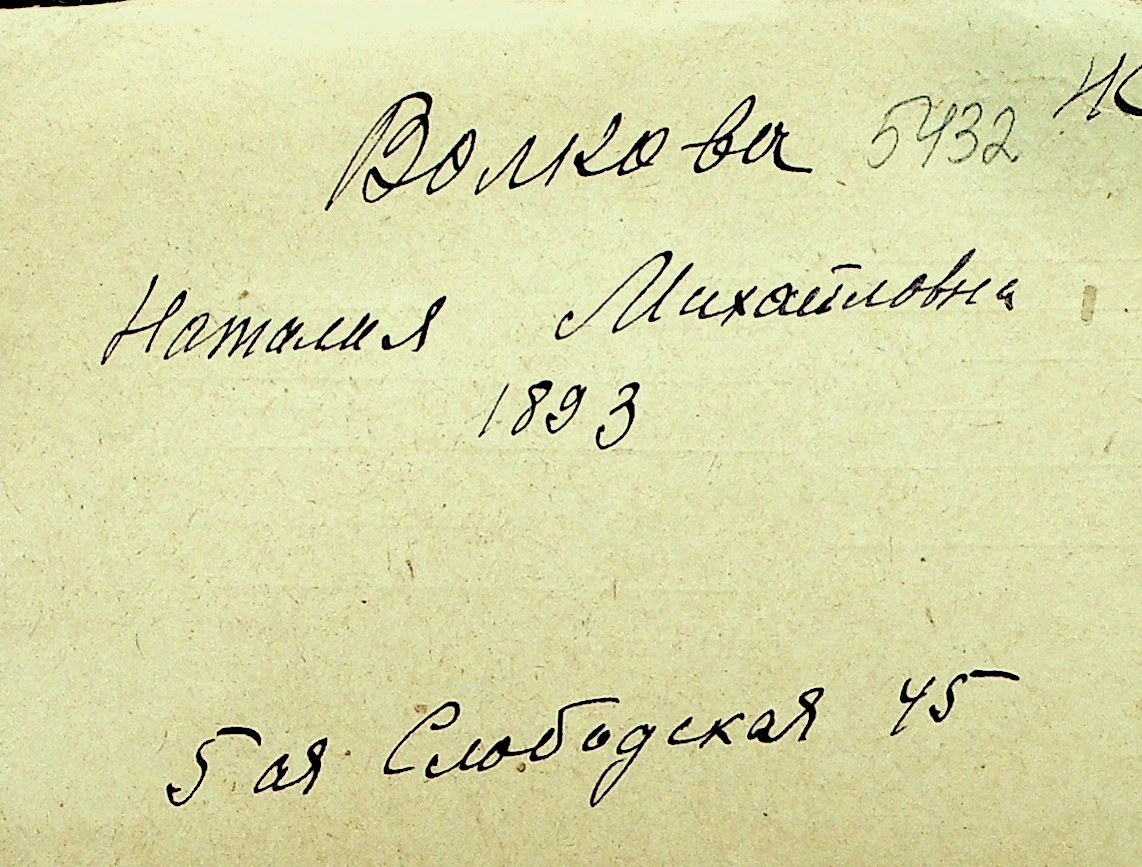 Волкова 5432
Наталия Михайловна
1893
5 ая Слободская 45